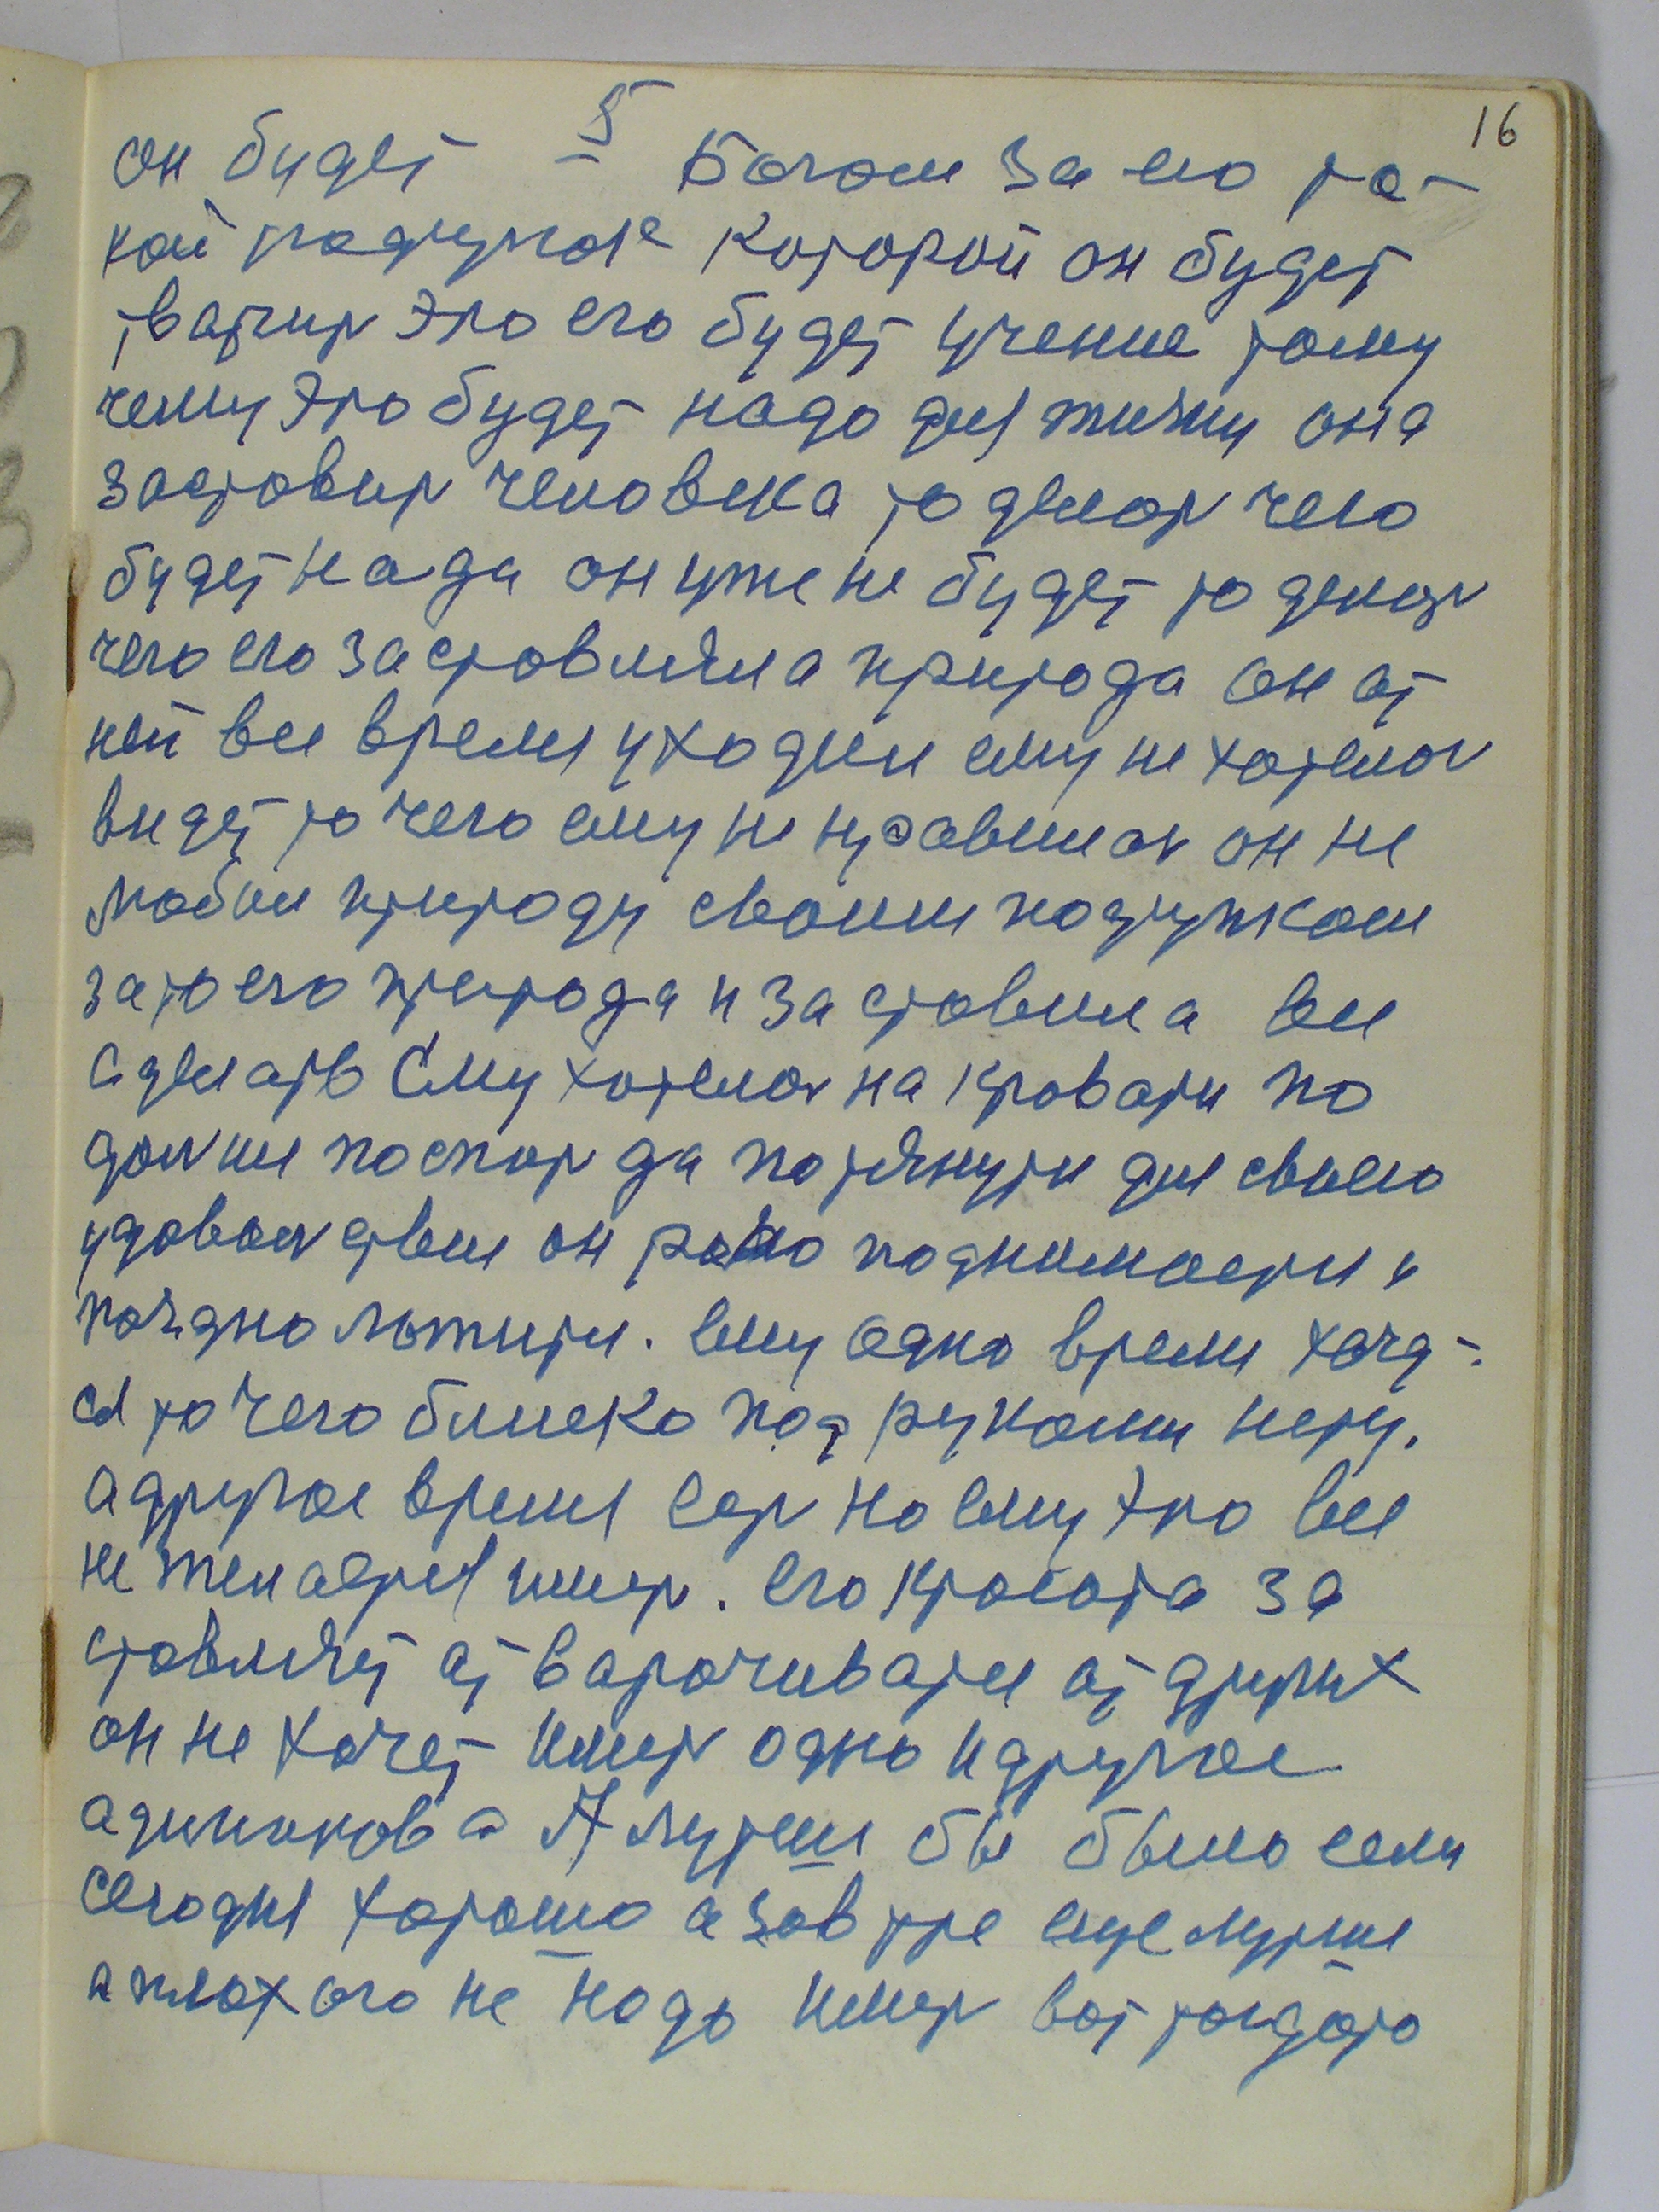 16
5
он будет Богом за его та-
кой падступок которой он будет
тварить Это его будет учение тому
чему Это будет надо для жизни она
застовить человека то делать чего
будет нада он уже не будет то делать
чего его застовляла природа он от
ней все время уходил ему не хотелось
видет то чего ему не нравилось он не
любил природу своим подступком
зато его природа и застовила все
сделать Ему хотелось на кровати по
дольше поспать да потянути для своего
удовольствие он рано поднимается и
поздно лжится. ему одно время хочет-
ся то чего близко под руками нету.
а другое время есть но ему Это все
не желается имет. его красота за
стовляет атварачиватся от других
он не хочет имет одно и другое
адинакова А лутше бы было если
сегодня хорошо а завтре еще лутше
а плохого не надо имет вот тогдато